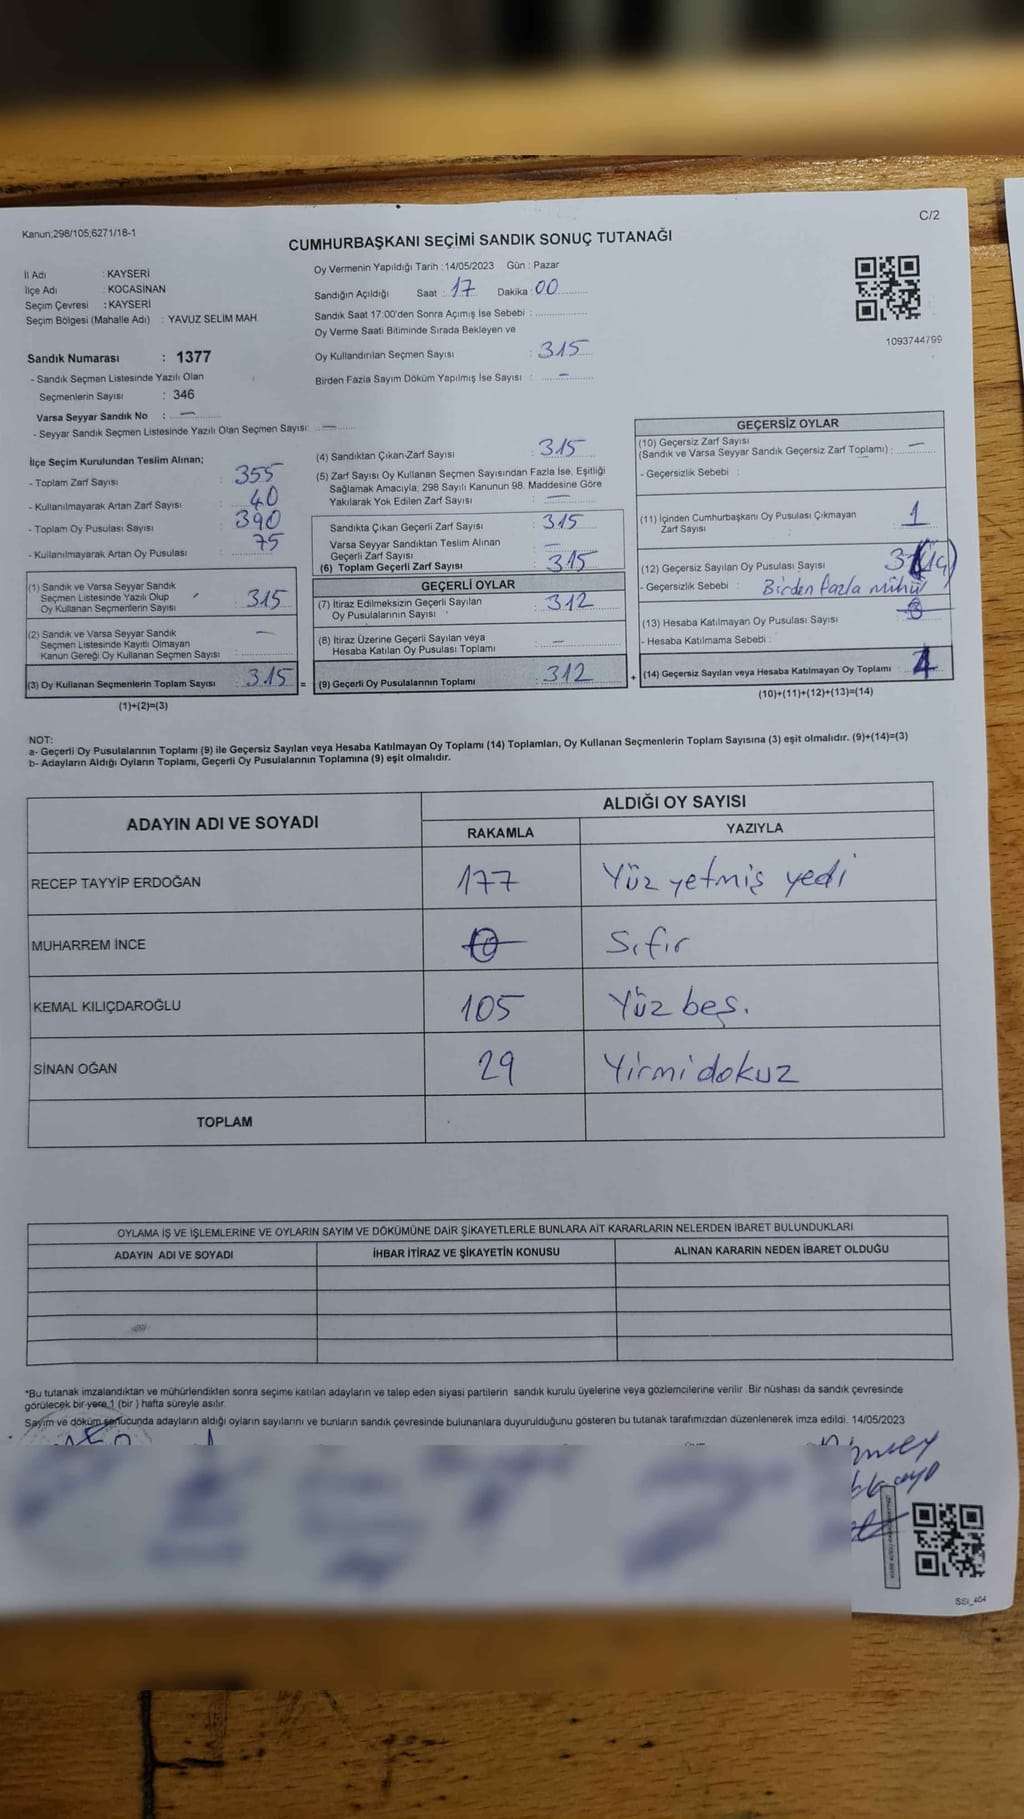 C/2
Kanun;298/105;6271/18-1
CUMHURBAŞKANI SEÇİMİ SANDIK SONUÇ TUTANAĞI
İl Adı : KAYSERİ
İlçe Adı : KOCASİNAN
Seçim Çevresi : KAYSERİ
Seçim Bölgesi (Mahalle Adı) : YAVUZ SELİM MAH.
Sandık Numarası : 1377
- Sandık Seçmen Listesinde Yazılı Olan
Seçmenlerin Sayısı : 346
Varsa Seyyar Sandık No : —
- Seyyar Sandık Seçmen Listesinde Yazılı Olan Seçmen Sayısı: —
Oy Vermenin Yapıldığı Tarih : 14/05/2023 Gün : Pazar
Sandığın Açıldığı Saat : 17 Dakika : 00
Sandık Saat 17:00'den Sonra Açımış İse Sebebi :
Oy Verme Saati Bitiminde Sırada Bekleyen ve
Oy Kullandırılan Seçmen Sayısı : 315
Birden Fazla Sayım Döküm Yapılmış İse Sayısı : —
1093744799
İlçe Seçim Kurulundan Teslim Alınan;
- Toplam Zarf Sayısı : 355
- Kullanılmayarak Artan Zarf Sayısı : 40
- Toplam Oy Pusulası Sayısı : 390
- Kullanılmayarak Artan Oy Pusulası : 75
(1) Sandık ve Varsa Seyyar Sandık
Seçmen Listesinde Yazılı Olup
Oy Kullanan Seçmenlerin Sayısı : 315
(2) Sandık ve Varsa Seyyar Sandık
Seçmen Listesinde Kayıtlı Olmayan
Kanun Gereği Oy Kullanan Seçmen Sayısı : —
(3) Oy Kullanan Seçmenlerin Toplam Sayısı : 315 =
(1)+(2)=(3)
(4) Sandıktan Çıkan Zarf Sayısı : 315
(5) Zarf Sayısı Oy Kullanan Seçmen Sayısından Fazla İse, Eşitliği
Sağlamak Amacıyla; 298 Sayılı Kanunun 98. Maddesine Göre
Yakılarak Yok Edilen Zarf Sayısı : —
Sandıkta Çıkan Geçerli Zarf Sayısı : 315
Varsa Seyyar Sandıktan Teslim Alınan
Geçerli Zarf Sayısı : —
(6) Toplam Geçerli Zarf Sayısı : 315
GEÇERLİ OYLAR
(7) İtiraz Edilmeksizin Geçerli Sayılan
Oy Pusulalarının Sayısı : 312
(8) İtiraz Üzerine Geçerli Sayılan veya
Hesaba Katılan Oy Pusulası Toplamı : —
(9) Geçerli Oy Pusulalarının Toplamı : 312 +
GEÇERSİZ OYLAR
(10) Geçersiz Zarf Sayısı
(Sandık ve Varsa Seyyar Sandık Geçersiz Zarf Toplamı) : —
- Geçersizlik Sebebi :
(11) İçinden Cumhurbaşkanı Oy Pusulası Çıkmayan
Zarf Sayısı : 1
(12) Geçersiz Sayılan Oy Pusulası Sayısı
- Geçersizlik Sebebi : Birden fazla mühür
(13) Hesaba Katılmayan Oy Pusulası Sayısı
- Hesaba Katılmama Sebebi :
(14) Geçersiz Sayılan veya Hesaba Katılmayan Oy Toplamı
(10)+(11)+(12)+(13)=(14)
NOT:
a- Geçerli Oy Pusulalarının Toplamı (9) ile Geçersiz Sayılan veya Hesaba Katılmayan Oy Toplamı (14) Toplamları, Oy Kullanan Seçmenlerin Toplam Sayısına (3) eşit olmalıdır. (9)+(14)=(3)
b- Adayların Aldığı Oyların Toplamı, Geçerli Oy Pusulalarının Toplamına (9) eşit olmalıdır.
ADAYIN ADI VE SOYADI ALDIĞI OY SAYISI
RAKAMLA YAZIYLA
RECEP TAYYİP ERDOĞAN 177 Yüz yetmiş yedi
MUHARREM İNCE Sıfır
KEMAL KILIÇDAROĞLU 105 Yüz beş.
SİNAN OĞAN 29 Yirmi dokuz
TOPLAM
OYLAMA İŞ VE İŞLEMLERİNE VE OYLARIN SAYIM VE DÖKÜMÜNE DAİR ŞİKAYETLERLE BUNLARA AİT KARARLARIN NELERDEN İBARET BULUNDUKLARI
ADAYIN ADI VE SOYADI İHBAR İTİRAZ VE ŞİKAYETİN KONUSU ALINAN KARARIN NEDEN İBARET OLDUĞU
*Bu tutanak imzalandıktan ve mühürlendikten sonra seçime katılan adayların ve talep eden siyasi partilerin sandık kurulu üyelerine veya gözlemcilerine verilir. Bir nüshası da sandık çevresinde
görülecek bir yere 1 (bir ) hafta süreyle asılır.
Sayım ve döküm sonucunda adayların aldığı oyların sayılarını ve bunların sandık çevresinde bulunanlara duyurulduğunu gösteren bu tutanak tarafımızdan düzenlenerek imza edildi. 14/05/2023
SSI_404